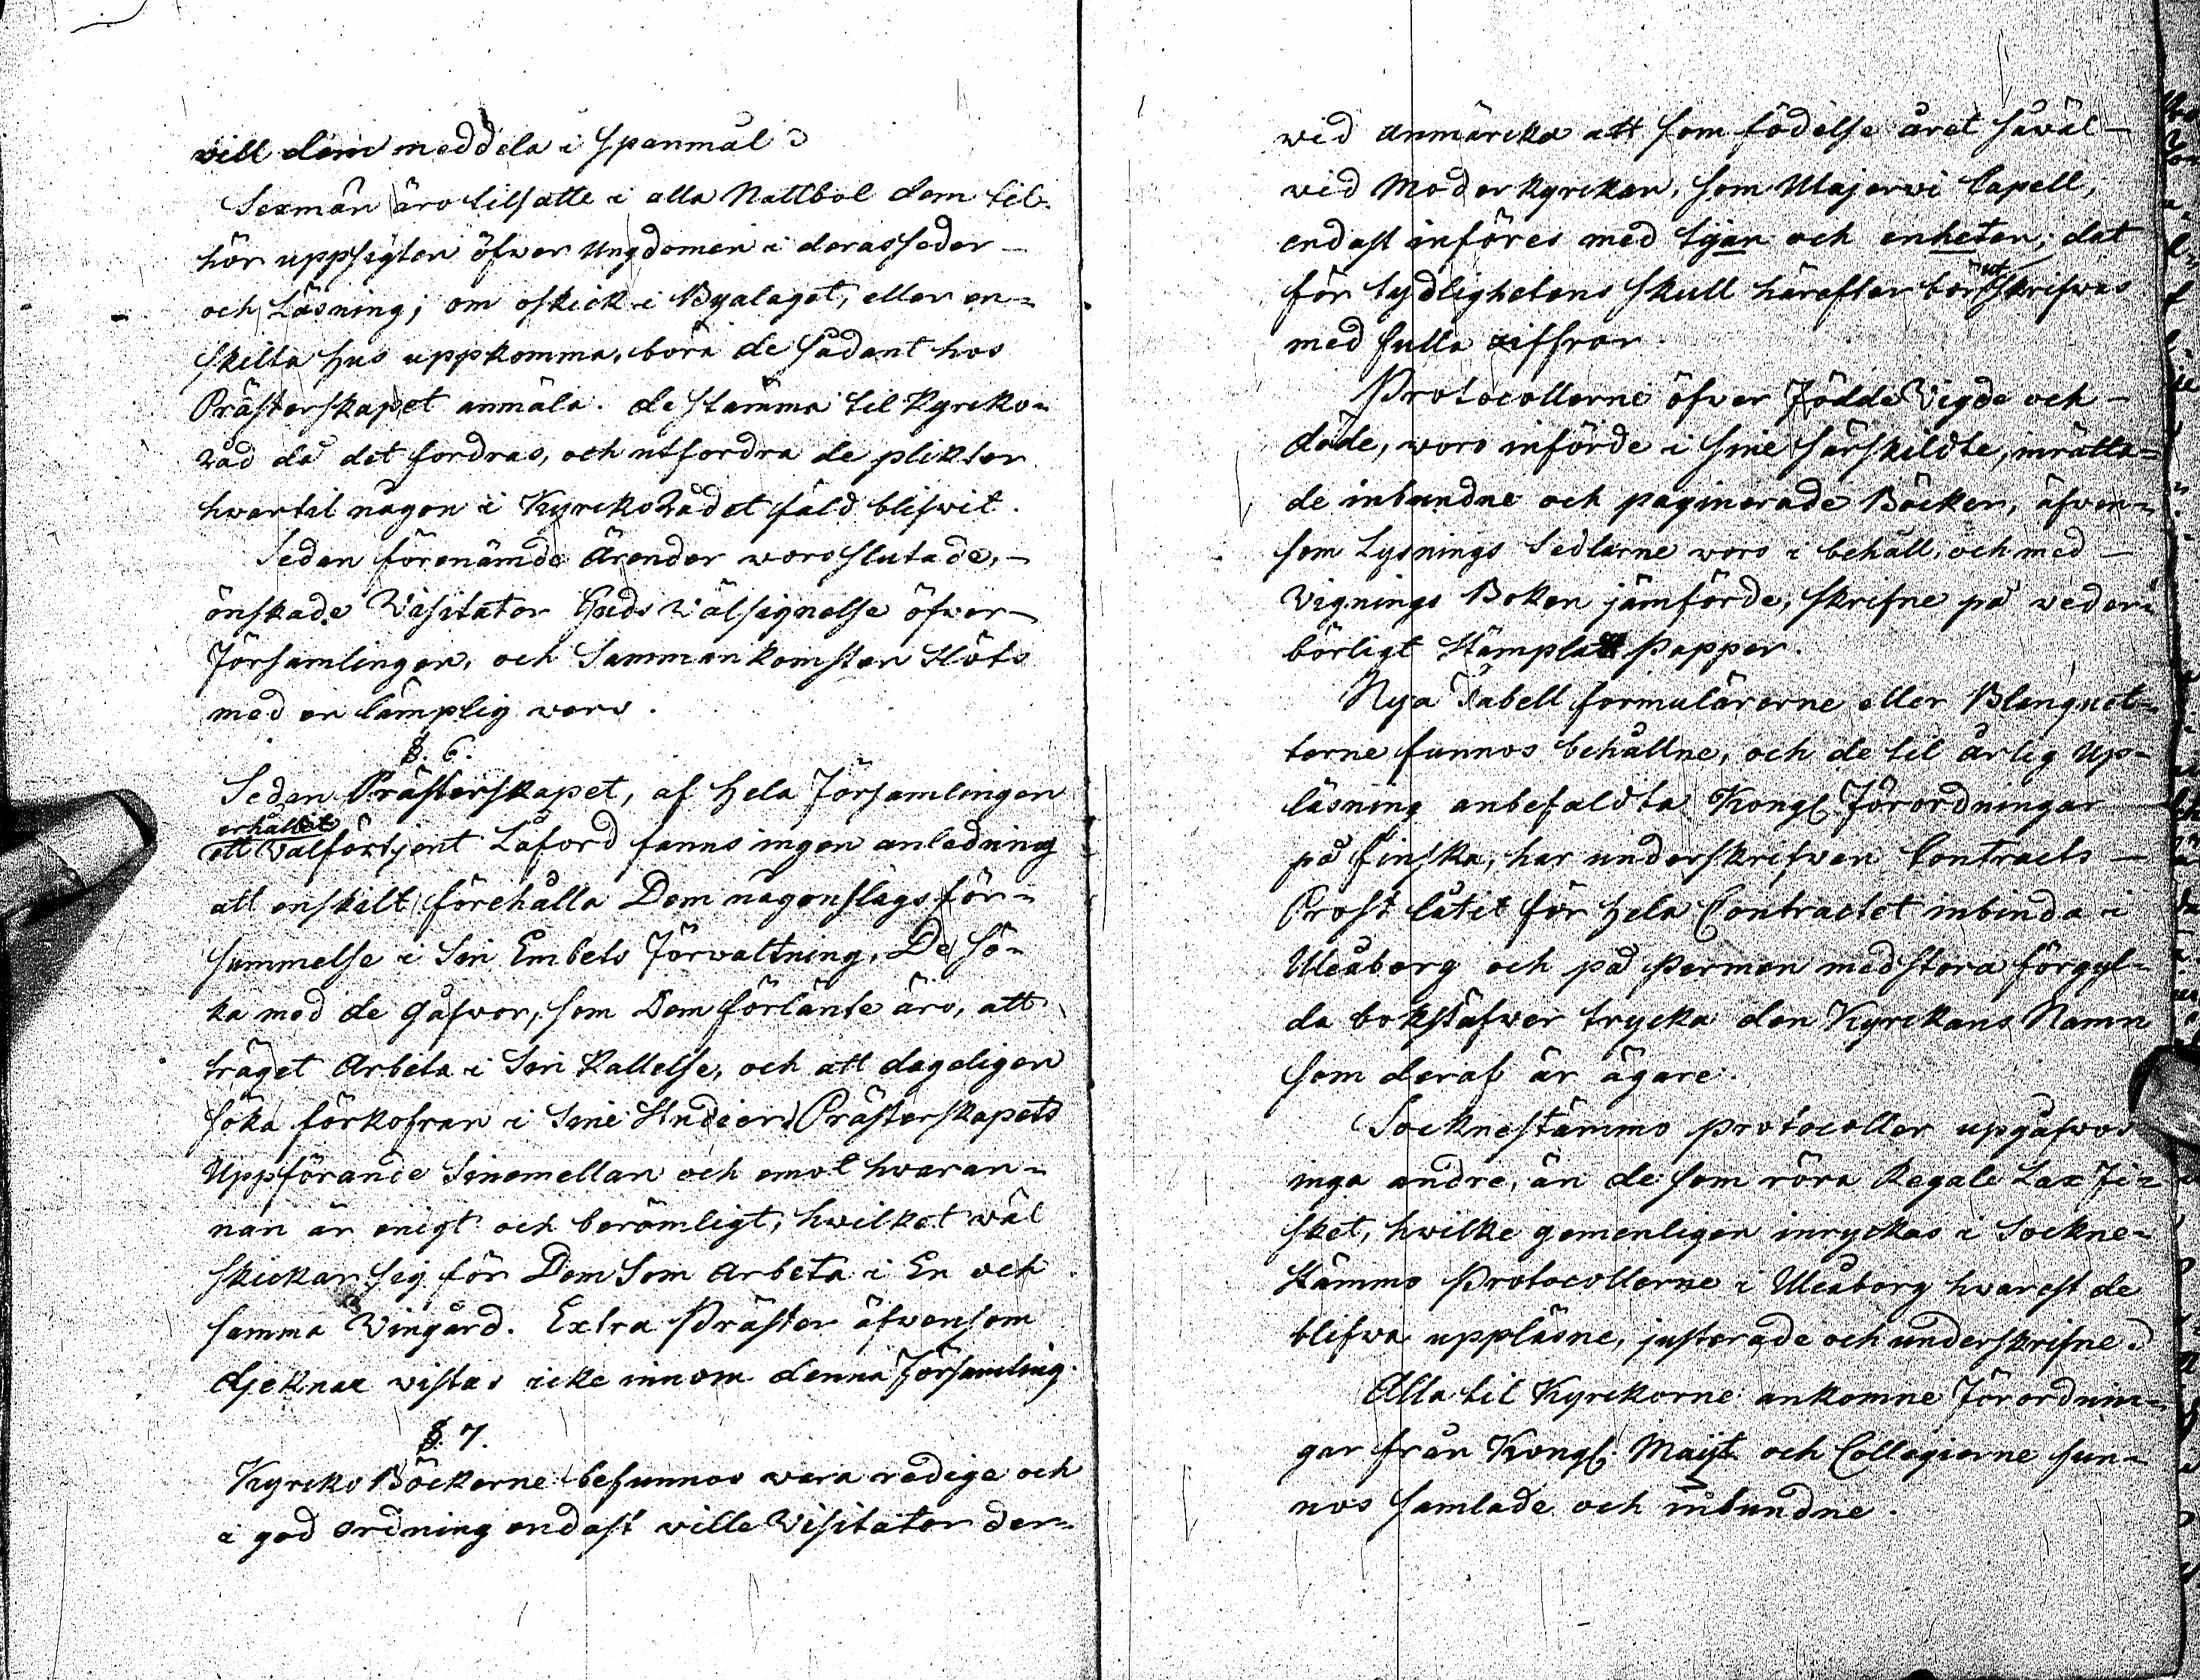 will dem meddela i Spanmål
Sexmän äro tilsatte i alla Mattbol dem til-
hör uppsigten öfwer Ungdomen i deras seder
och Läsning; om oskick i Byalaget, eller en-
skilta hus uppkomma, böra de sådant hos
Prästerskapet anmäla. de stämma til Kyrcko-
råd då det fordras, och utfordra de plikter
hwartil någon i KyrckoRådet fäld blifwit.
Sedan förenämde Ärender woro slutade,
önskade Visitator Guds Wälsignelse öfwer
Församlingen, och Sammankomsten slöts
med en lämplig wers.
§. 6.
Sedan Prästerskapet, af hela Församlingen
erhållit
ett Välförtjent Låford fanns ingen anledning
att enskilt förehålla Dem någonslags för-
summelse i Sin Embets Förvaltning. De sö-
ka med de gåfwor, som Dem förlänte äro, att
träget Arbeta i Sin Kallelse, och att dageligen
söka förkofran i Sine Studier. Prästerskapets
Uppförande Sinemellan och emot hwaran-
nan är enigt och berömligt, hwilket wäl
skickar sig för Dem Som arbeta i En och
samma Vingård. Extra Präster äfwensom
djeknar vistas icke innom denna Församling.
§. 7.
Kyrcko Böckerne befunnos wara redige och
i god ordning endast wille Visitator der-
wid anmärcka att som födelse året såwäl
wid Moderkyrckan, som Ulajerwi Capell,
endast införes med tijan och enheten; det
för tydlighetens skull härefter bör utskrifwas
med fulla ziffror.
Protocollerne öfwer Födde Vigde och
döde, woro införde i sine särskildte, inrätta-
de inbundne och paginerade Böcker, äfwen-
som Lysnings Sedlarne woro i behåll, och med
Vignings Boken jämförde, skrifne på weder-
börligt Stämplat Papper.
Nya Tabell formulärerne eller Blanquet-
terne funnos behållne, och de til årlig Up-
läsning anbefaldta Kongl. Förordningar
på finska, har underskrifwen Contracts
Prost låtit för hela Contractet inbinda i
Uleåborg och på Permen med stora förgyl-
da bokstäfwer trycka den Kyrckans Namn
som deraf är ägare.
Socknestämmo protocoller upgåfwos
inga andre, än de som röra Regale Lax Fi-
sket, hwilke gemenligen inryckas i Sockne-
Stämmo Protocollerne i Uleåborg hwarest de
blifwa uppläsne, justerade och underskrifne.
Alla til Kyrckorne ankomne Förordnin-
gar från Kongl. Maijt och Collegierne fun-
nos samlade och inbundne.